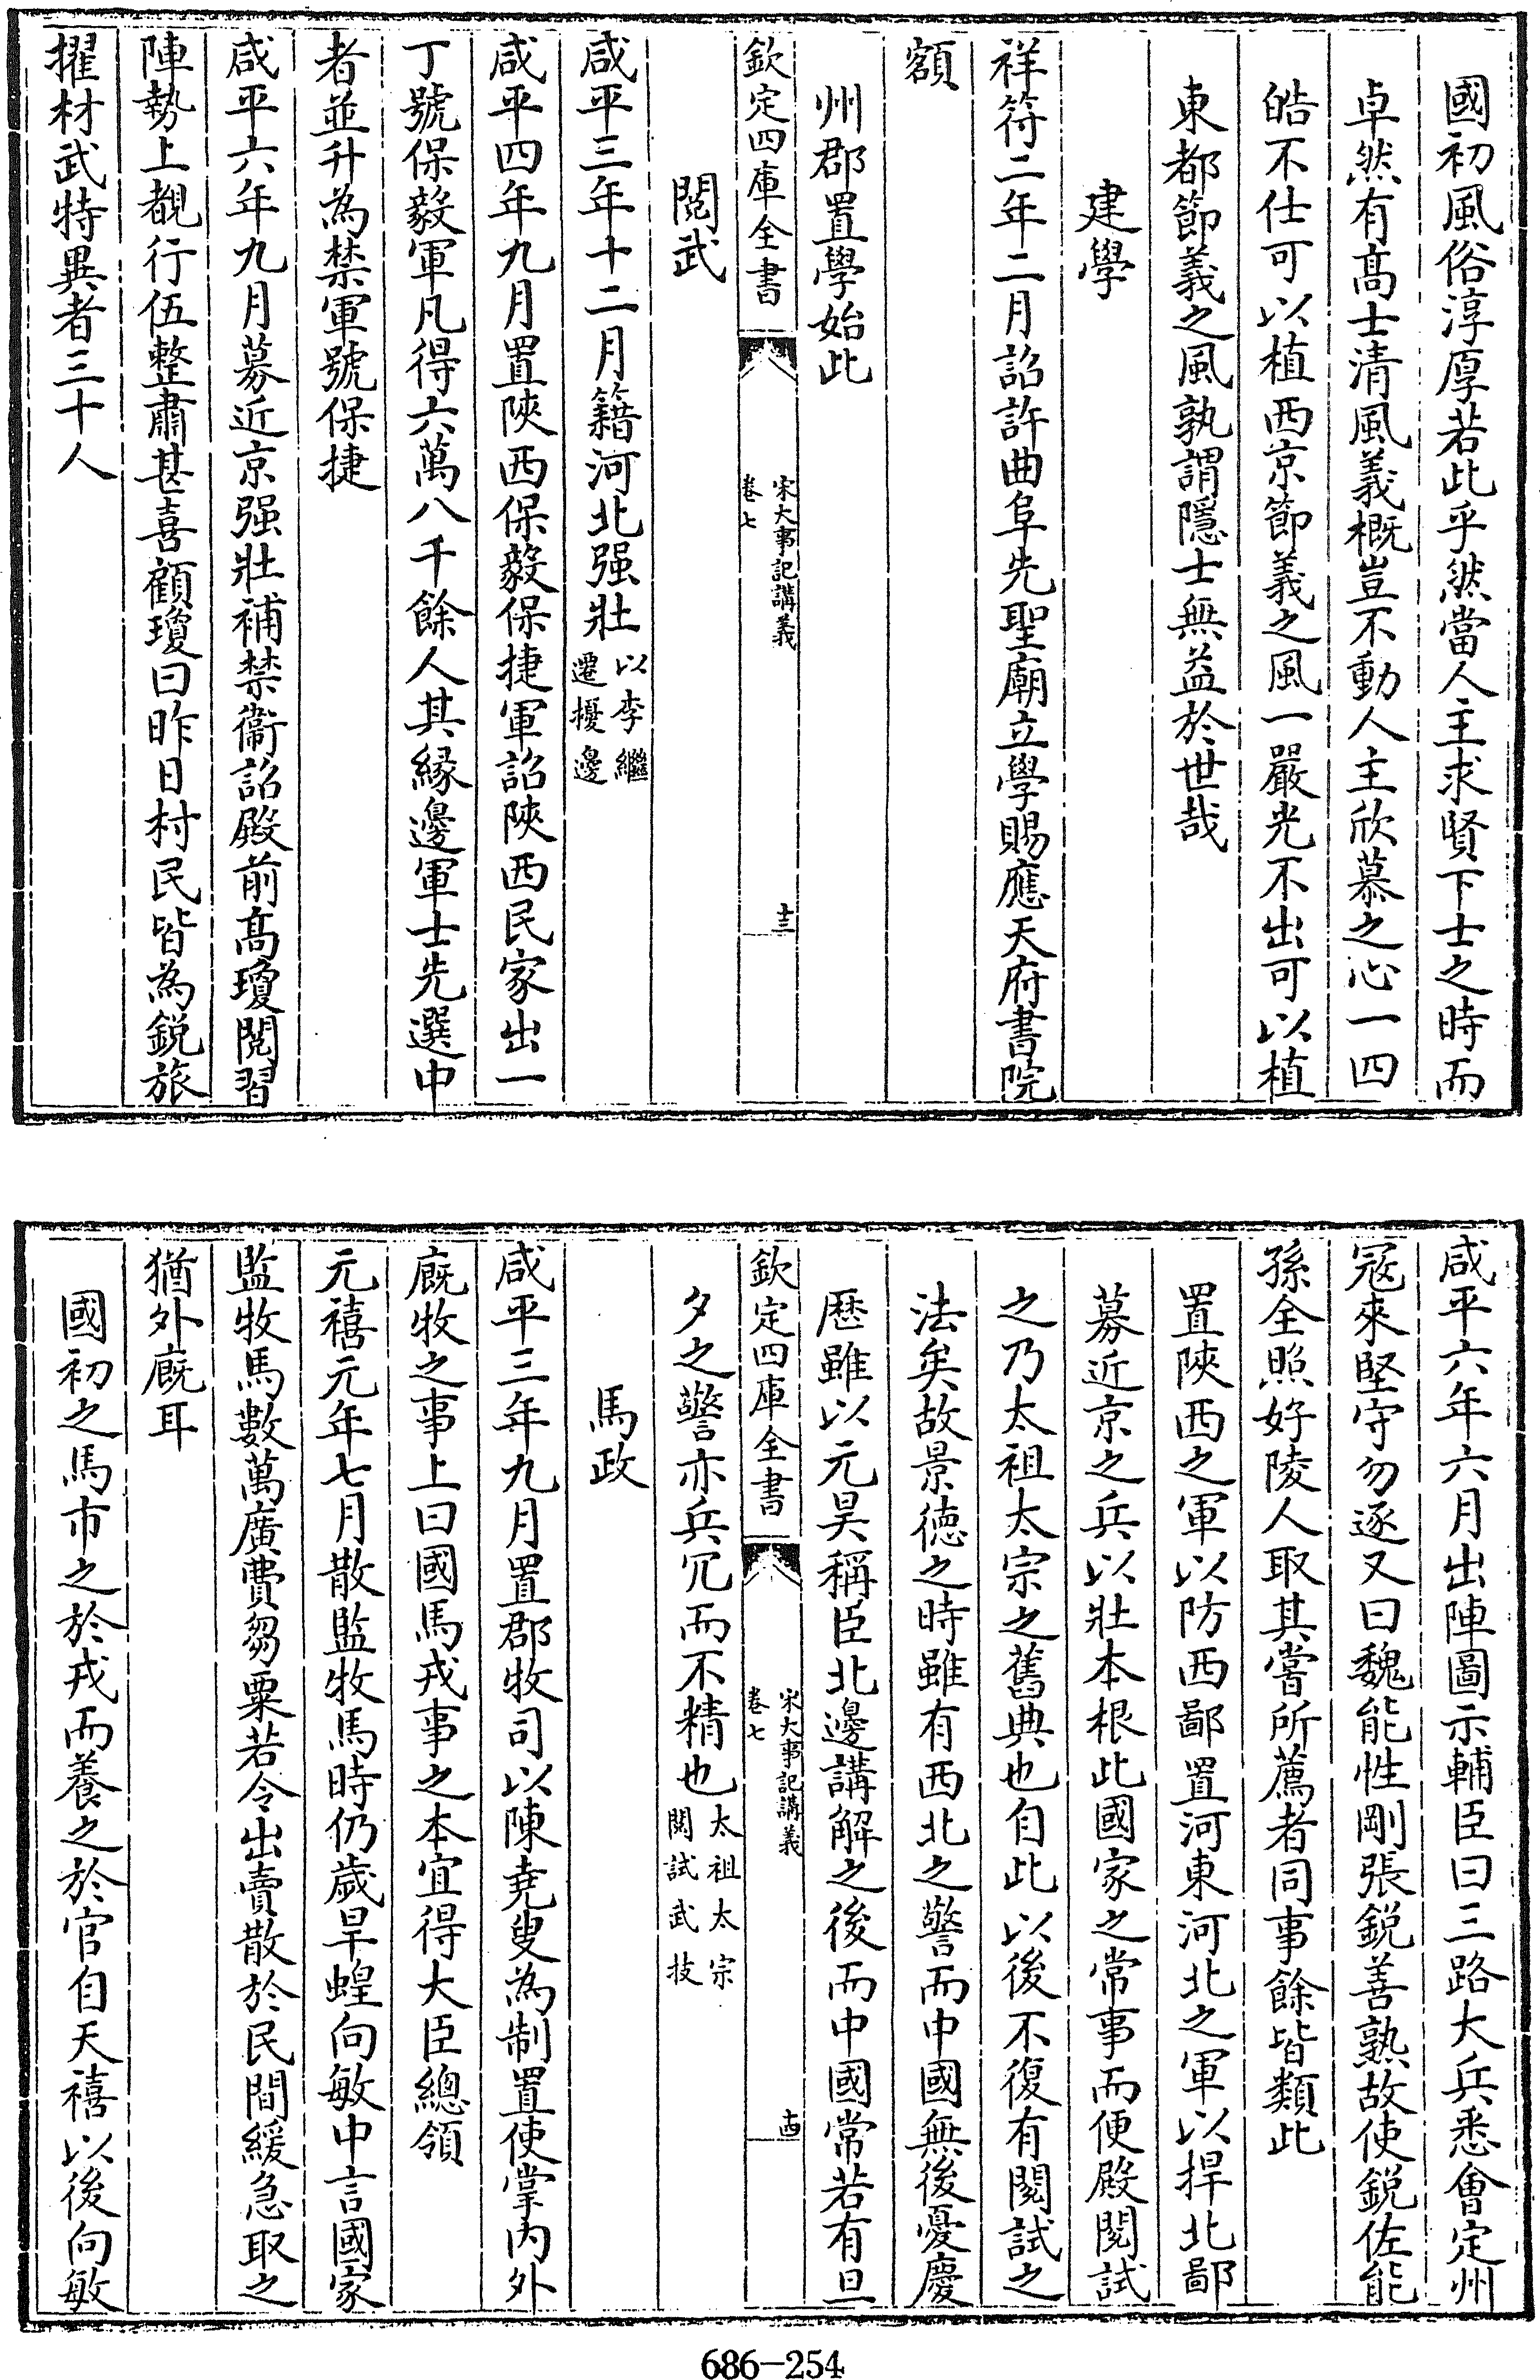 國初風俗淳厚若此乎然當人主求賢下士之時而
卓然有髙士清風義概豈不動人主欣慕之心一四
皓不仕可以植西京節義之風一嚴光不出可以植
東都節義之風孰謂隱士無益於世哉
建學
祥符二年二月詔許曲阜先聖廟立學賜應天府書院
額
州郡置學始此
欽定四庫全書
宋大事記講義
卷七
十三
閱武
咸平三年十二月籍河北强壯以李繼
遷擾邊
咸平四年九月置陜西保毅保捷軍詔陜西民家出一
丁號保毅軍凡得六萬八千餘人其縁邊軍士先選中
者並升為禁軍號保捷
咸平六年九月募近京强壯補禁衞詔殿前髙瓊閱習
陣勢上覩行伍整肅甚喜顧瓊曰昨日村民皆為鋭旅
擢材武特異者三十人
咸平六年六月出陣圖示輔臣曰三路大兵悉會定州
冦來堅守勿逐又曰魏能性剛張鋭善熟故使鋭佐能
孫全照好陵人取其嘗所薦者同事餘皆類此
置陜西之軍以防西鄙置河東河北之軍以捍北鄙
募近京之兵以壯本根此國家之常事而便殿閱試
之乃太祖太宗之舊典也自此以後不復有閱試之
法矣故景徳之時雖有西北之警而中國無後憂慶
歴雖以元昊稱臣北邊講解之後而中國常若有旦
欽定四庫全書
宋大事記講義
卷七
十四
夕之警亦兵冗而不精也太祖太宗
閱試武技
馬政
咸平三年九月置郡牧司以陳堯叟為制置使掌内外
廐牧之事上曰國馬戎事之本宜得大臣總領
元禧元年七月散監牧馬時仍歲旱蝗向敏中言國家
監牧馬數萬廣費芻粟若令出賣散於民間緩急取之
猶外廐耳
國初之馬市之於戎而養之於官自天禧以後向敏
686-254